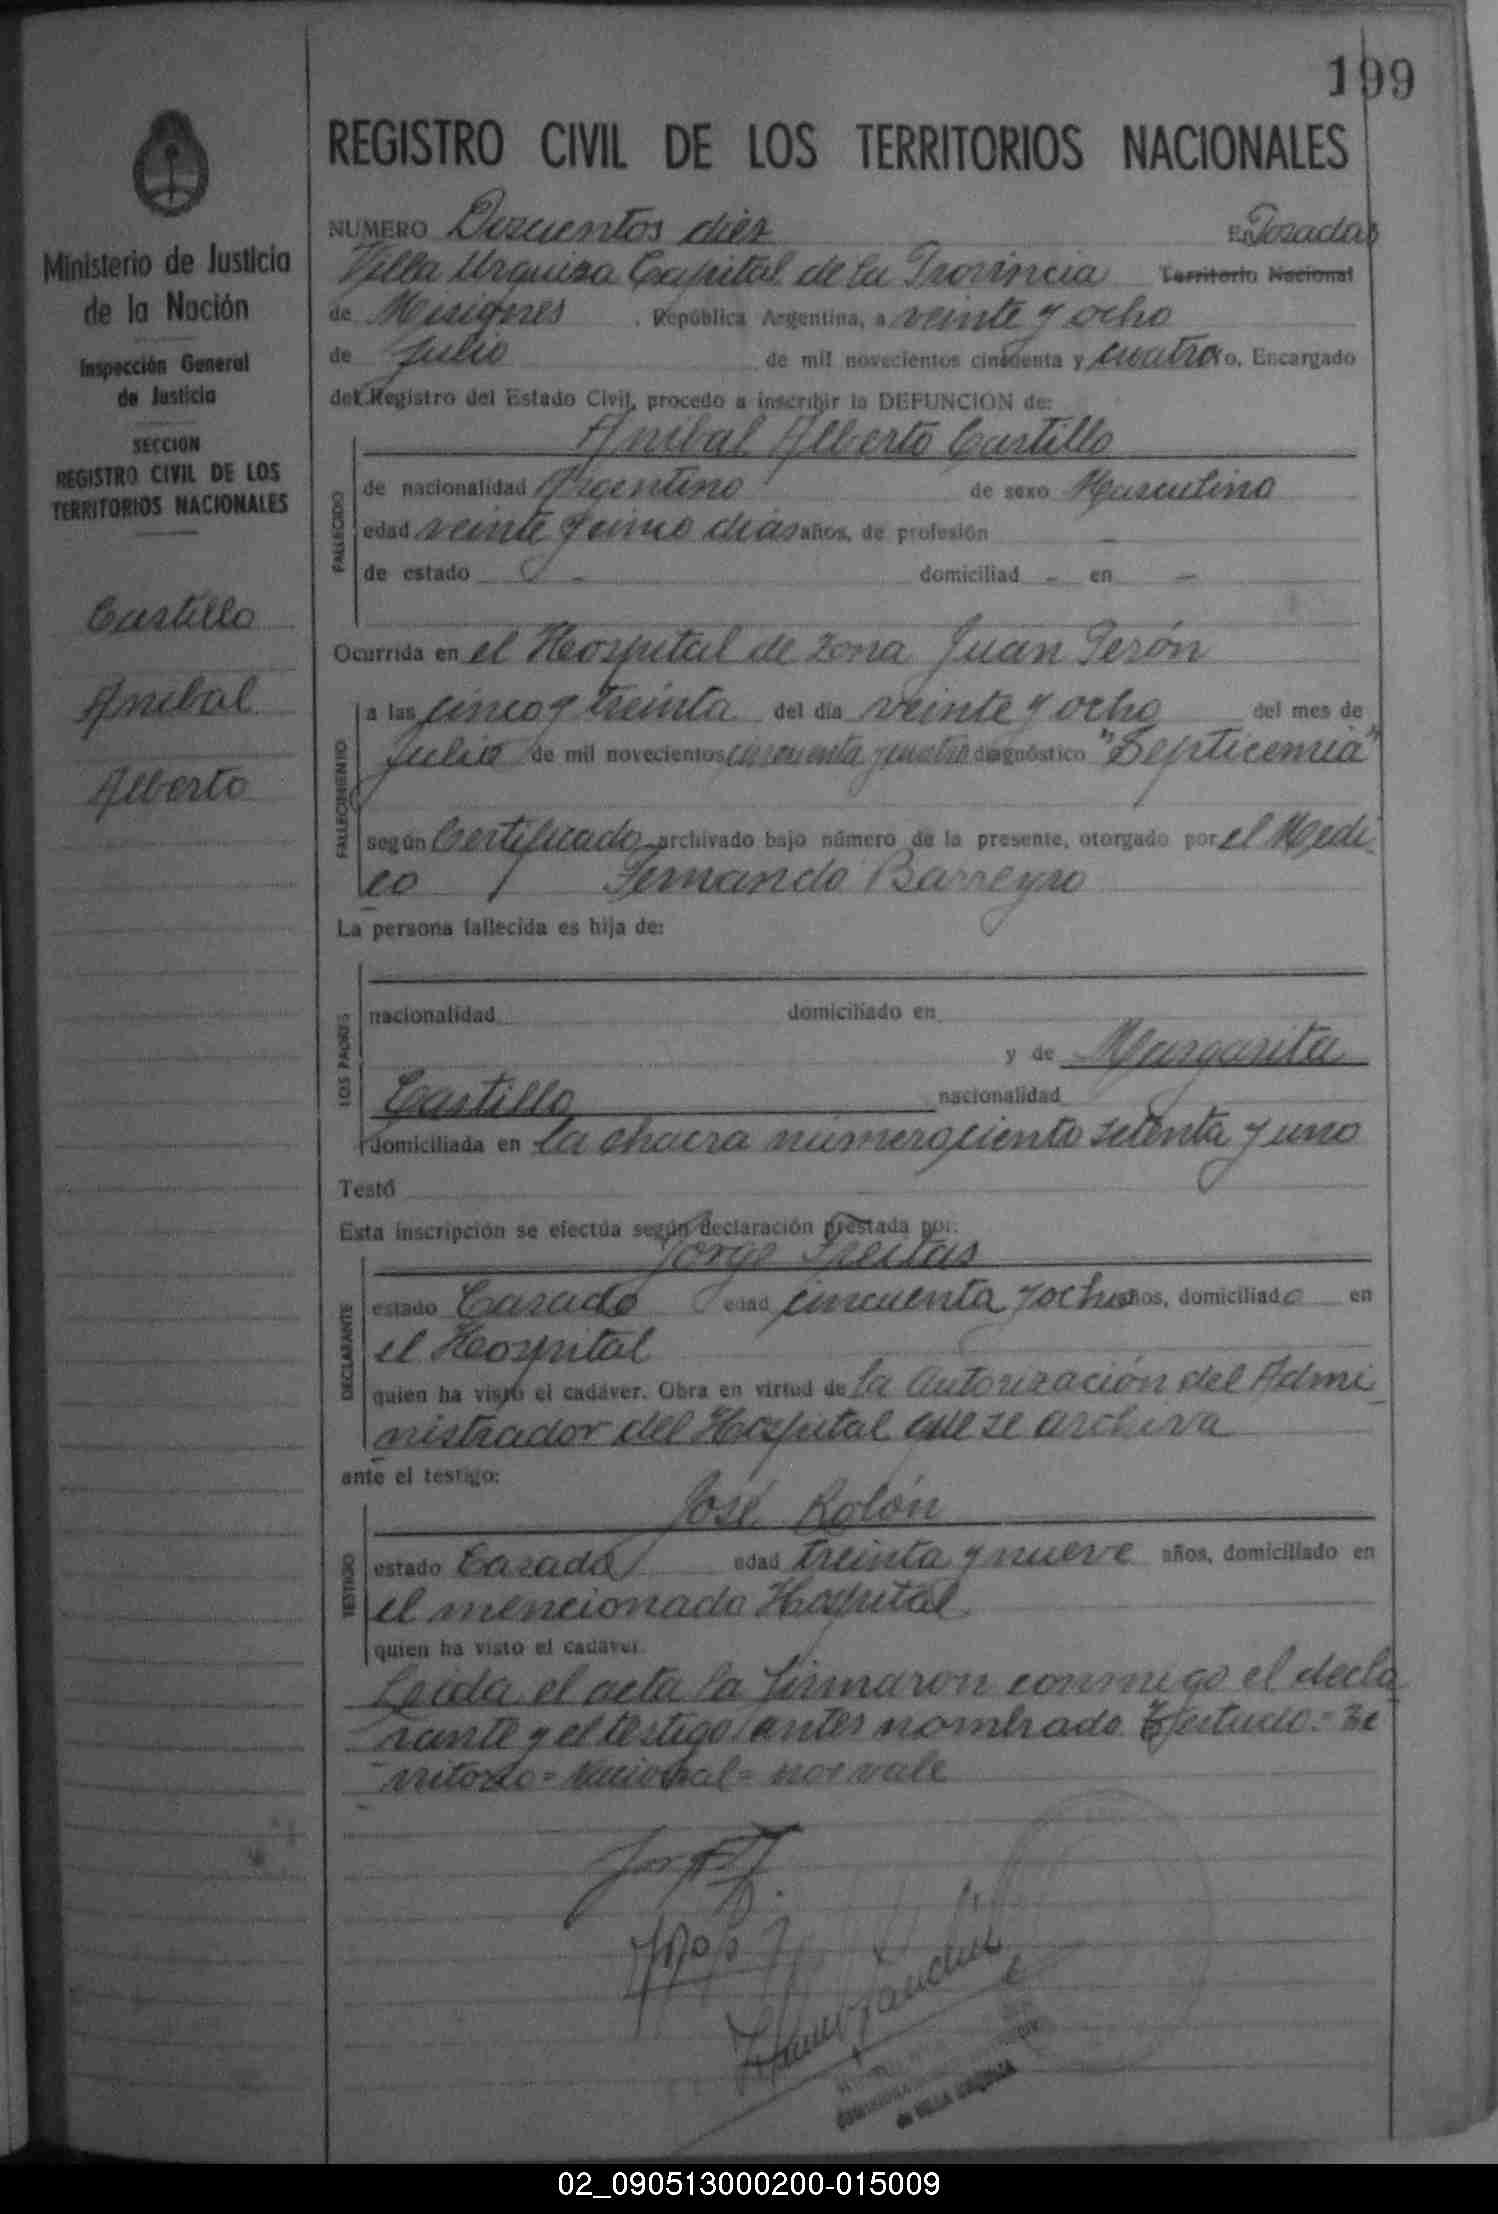 199
REGISTRO CIVIL DE LOS TERRITORIOS NACIONALES
Ministerio de Justicia
de la Nación
Inspección General
de Justicia
SECCION
REGISTRO CIVIL DE LOS
TERRITORIOS NACIONALES
Castillo
Anibal
Alberto
NUMERO Doscientos diez En Posadas
Villa Urquiza Capital de la Provincia Territorio Nacional
de Misiones, República Argentina, a veinte y ocho
de Julio de mil novecientos cincuenta y cuatro yo, Encargado
del Registro del Estado Civil, procedo a inscribir la DEFUNCION de:
Anibal Alberto Castillo
FALLECIDO
de nacionalidad Argentino de sexo Masculino
edad veinte y cinco dias años, de profesión -
de estado - domiciliad - en -
Ocurrida en el Hospital de zona Juan Perón
FALLECIMIENTO
a las cinco y treinta del día veinte y ocho del mes de
Julio de mil novecientos cincuenta y cuatro diagnóstico "Septicemia"
según Certificado archivado bajo número de la presente, otorgado por el Medi
co Fernando Barreyro
La persona fallecida es hija de:
LOS PADRES
nacionalidad domiciliado en
y de Margarita
Castillo nacionalidad
domiciliada en la chacra numero ciento setenta y uno
Testó
Esta inscripción se efectúa según declaración prestada por:
Jorge Freitas
DECLARANTE
estado Casado edad cincuenta y ocho años, domiciliado en
el Hospital
quien ha visto el cadáver. Obra en virtud de la Autorización del Admi
nistrador del Hospital que se archiva
ante el testigo:
José Rolón
TESTIGO
estado Casado edad treinta y nueve años, domiciliado en
el mencionado Hospital
quien ha visto el cadáver.
Leida el acta la firmaron conmigo el decla
rante y el testigo antes nombrado
Nacional = no vale
de VILLA URQUIZA
02_090513000200-015009